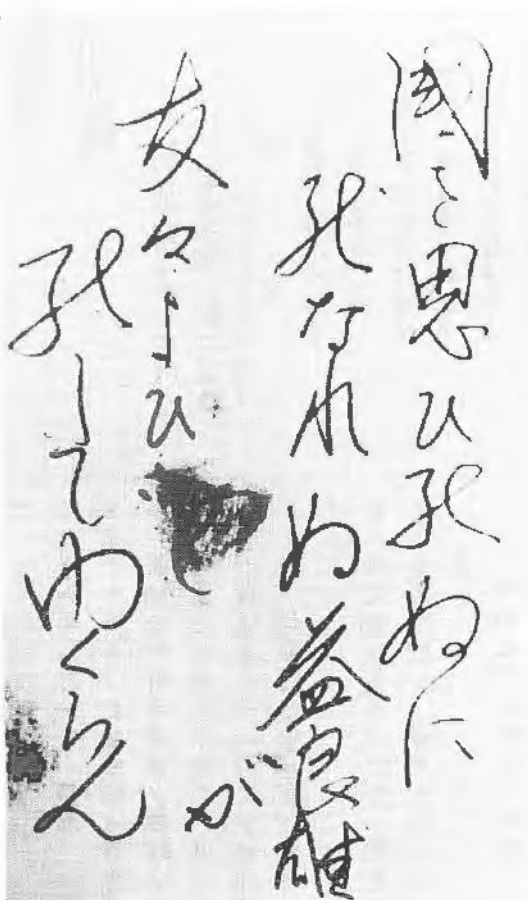 國を思ひ死ぬに
死なれぬ益良雄
が
友々よひつ
死してゆくらん